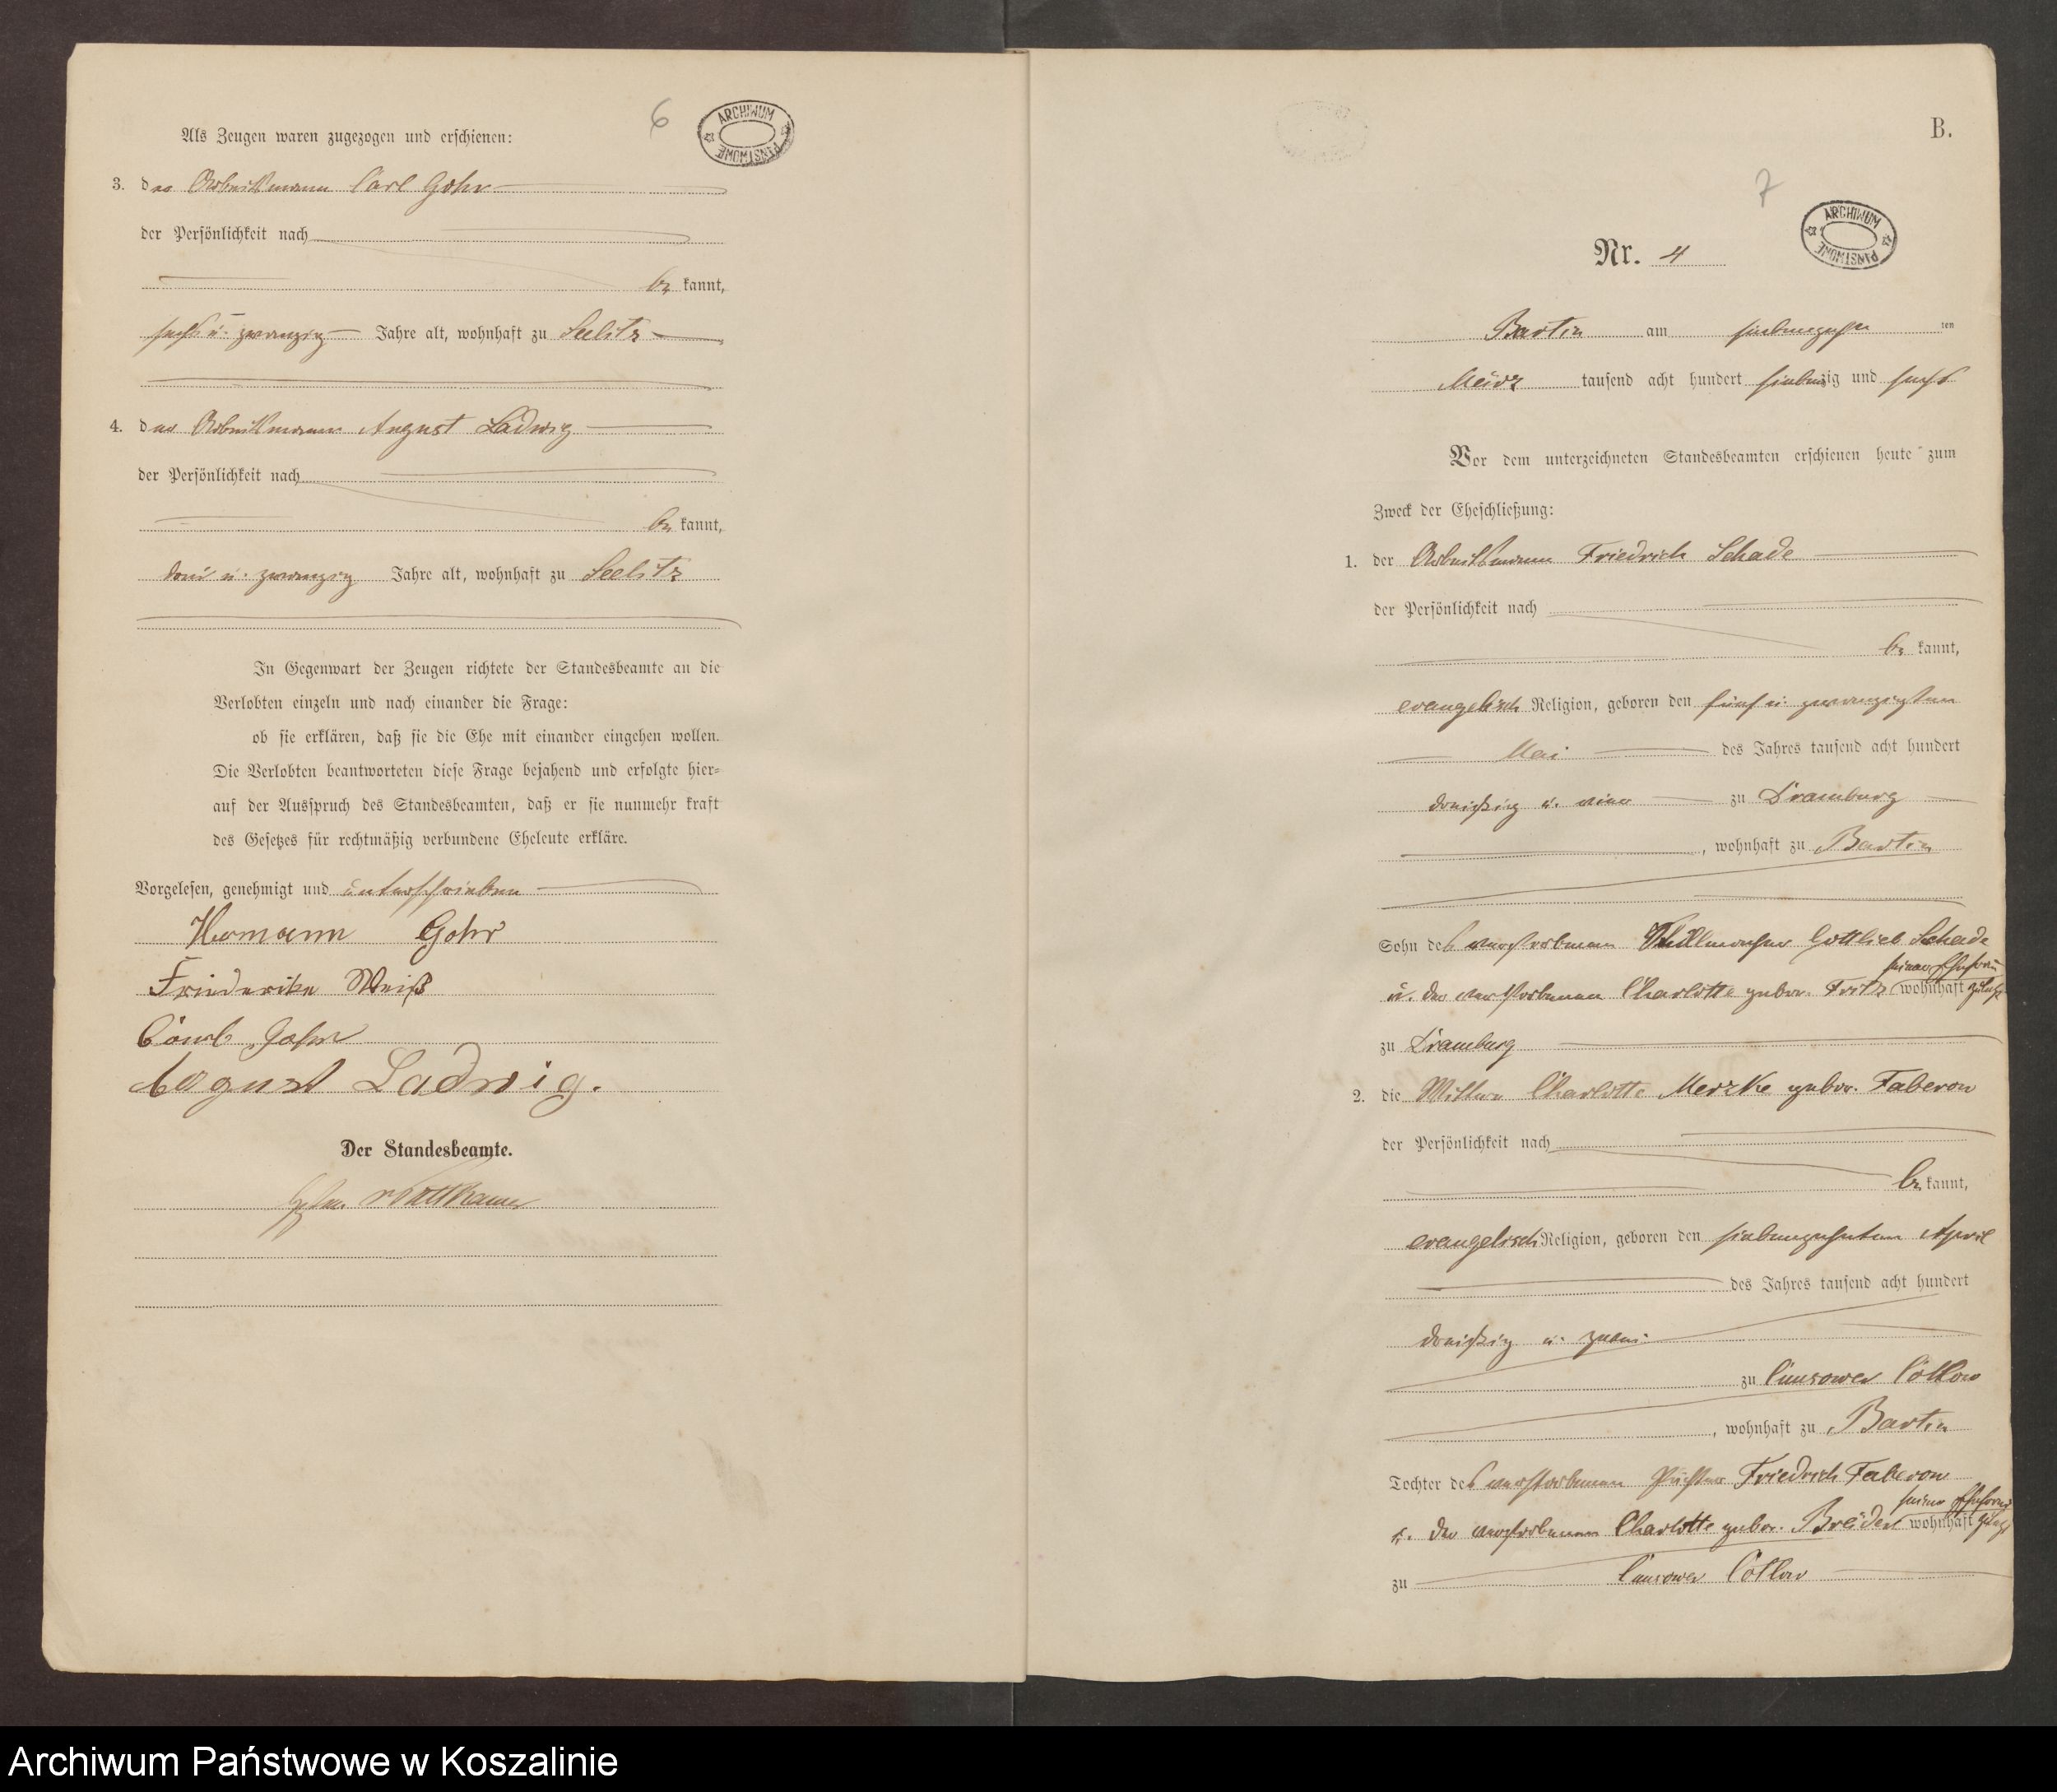 6
ARCHIWUM PAŃSTWOWE
Als Zeugen waren zugezogen und erschienen:
3. der Arbeitsmann Carl Gohr
der Persönlichkeit nach
be kannt,
sechs u. zwanzig Jahre alt, wohnhaft zu Seelitz
4. der Arbeitsmann August Ladwig
der Persönlichkeit nach
be kannt,
drei u. zwanzig Jahre alt, wohnhaft zu Seelitz
In Gegenwart der Zeugen richtete der Standesbeamte an die
Verlobten einzeln und nach einander die Frage:
ob sie erklären, daß sie die Ehe mit einander eingehen wollen.
Die Verlobten beantworteten diese Frage bejahend und erfolgte hier-
auf der Ausspruch des Standesbeamten, daß er sie nunmehr kraft
des Gesetzes für rechtmäßig verbundene Eheleute erkläre.
Vorgelesen, genehmigt und unterschrieben
Hermann Gohr
Friederike Weiß
Carl Gohr
August Ladwig.
Der Standesbeamte.
B.
7
ARCHIWUM PAŃSTWOWE
Nr. 4
Bartin am siebenzehn ten
März tausend acht hundert siebenzig und sechs
Vor dem unterzeichneten Standesbeamten erschienen heute zum
Zweck der Eheschließung:
1. der Arbeitsmann Friedrich Schade
der Persönlichkeit nach
be kannt,
evangelisch Religion, geboren den fünf u. zwanzigsten
Mai des Jahres tausend acht hundert
dreißig u. vier zu Dramburg
, wohnhaft zu Bartin
Sohn des verstorbenen Gottlieb Schade
seiner Ehefrau
u. der verstorbenen Charlotte gebor. Fritz wohnhaft zuletzt
zu Dramburg
2. die Wittwe Charlotte Merzke gebor. Faberow
der Persönlichkeit nach
be kannt,
evangelisch Religion, geboren den siebenzehnten April
des Jahres tausend acht hundert
dreißig u. zwei
zu Cunsower Cottow
, wohnhaft zu Bartin
Tochter des verstorbenen Friedrich Faberow
seiner Ehefrau
u. der verstorbenen Charlotte gebor. wohnhaft zuletzt
zu Cunsower Cottow
Archiwum Państwowe w Koszalinie